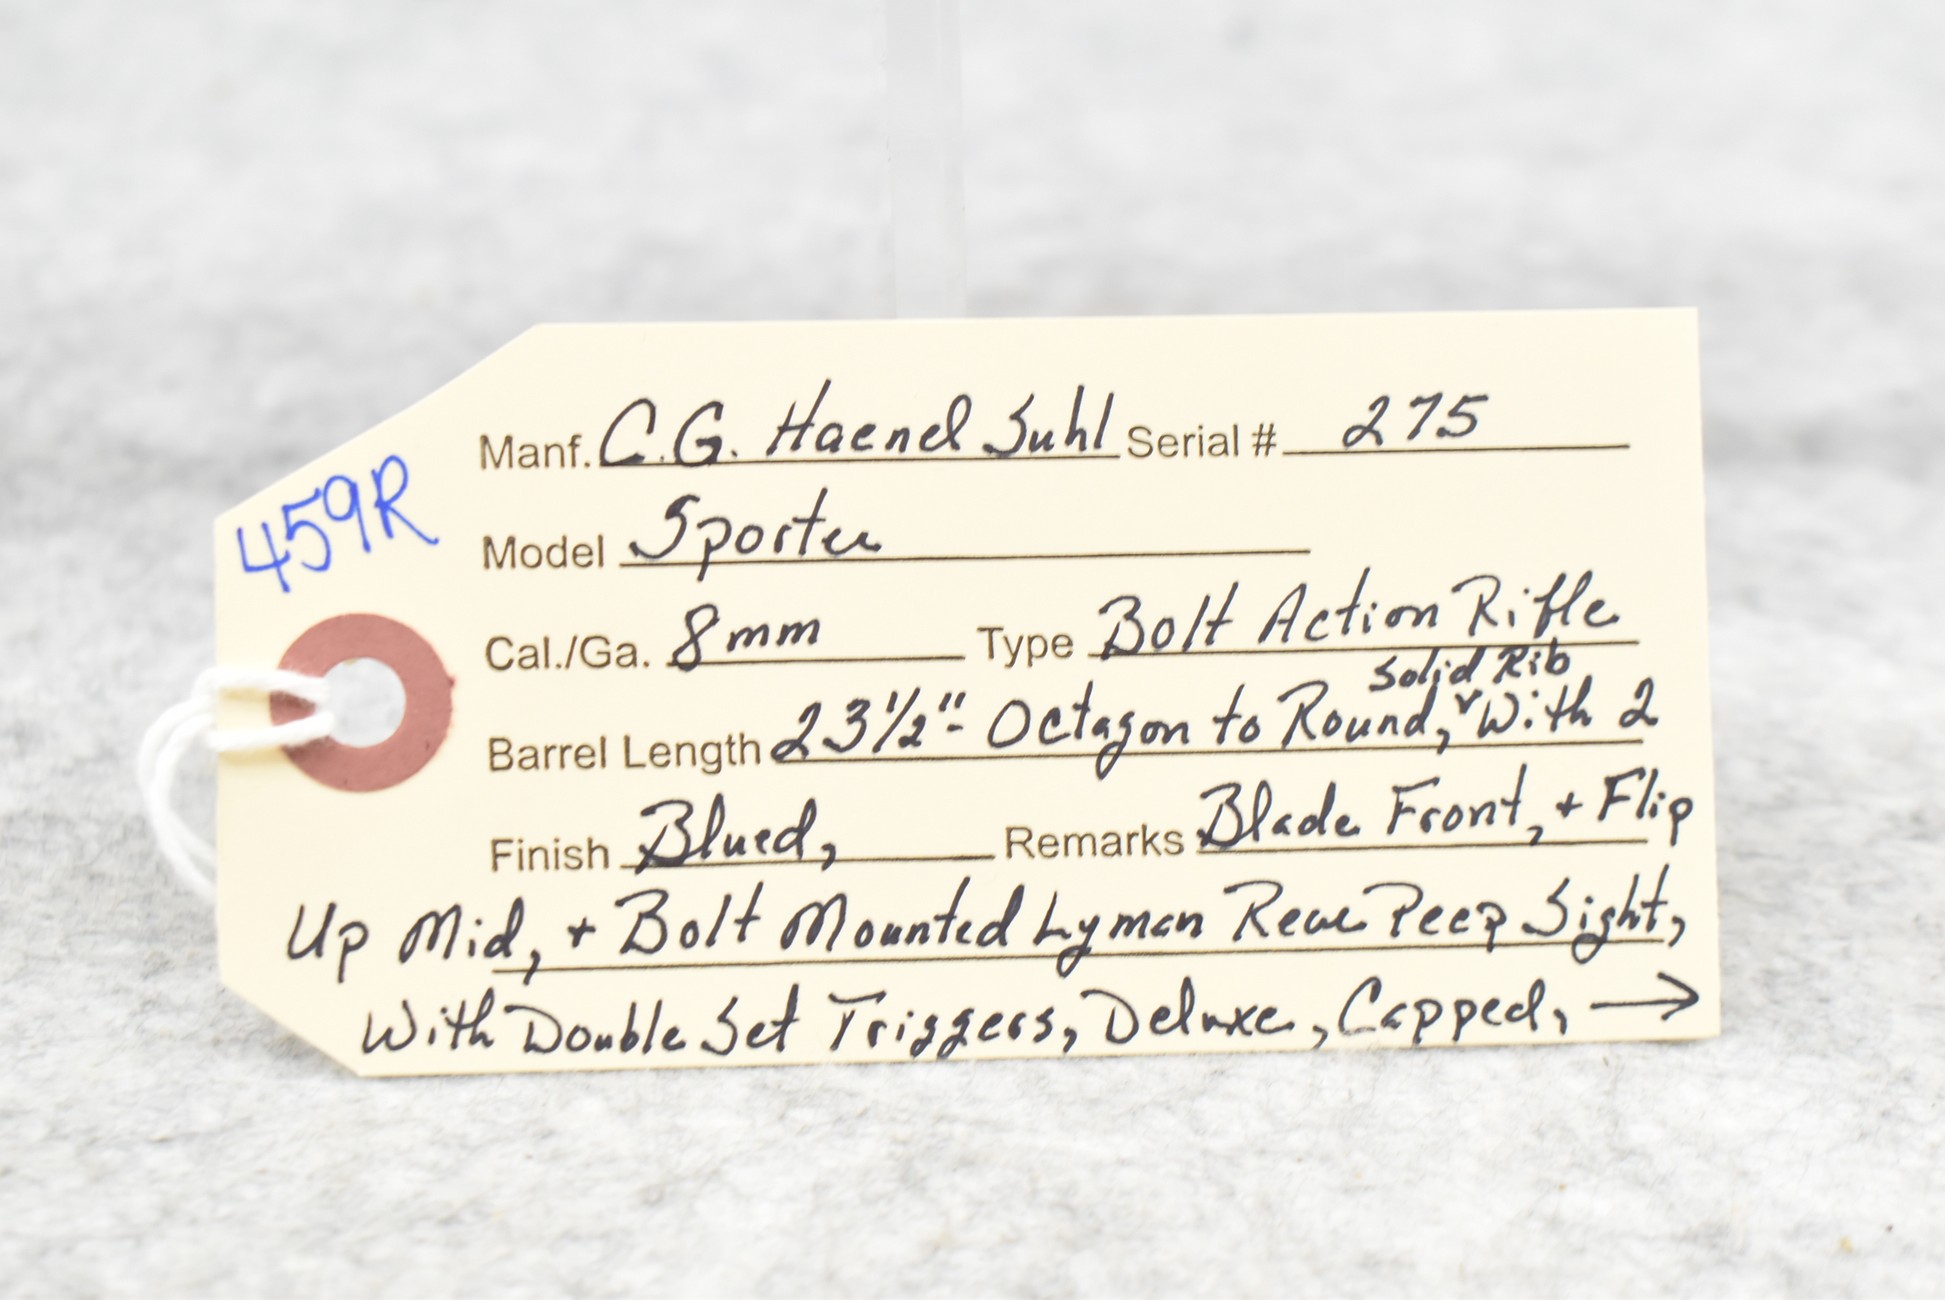 459R
Manf. C.G. Haenel Suhl Serial # 275
Model Sporter
Cal./Ga. 8mm Type Bolt Action Rifle
Solid Rib
Barrel Length 23 1/2" - Octagon to Round, ˅ With 2
Finish Blued, Remarks Blade Front, + Flip
Up Mid, + Bolt Mounted Lyman Rear Peep Sight,
With Double Set Triggers, Deluxe, Capped, →